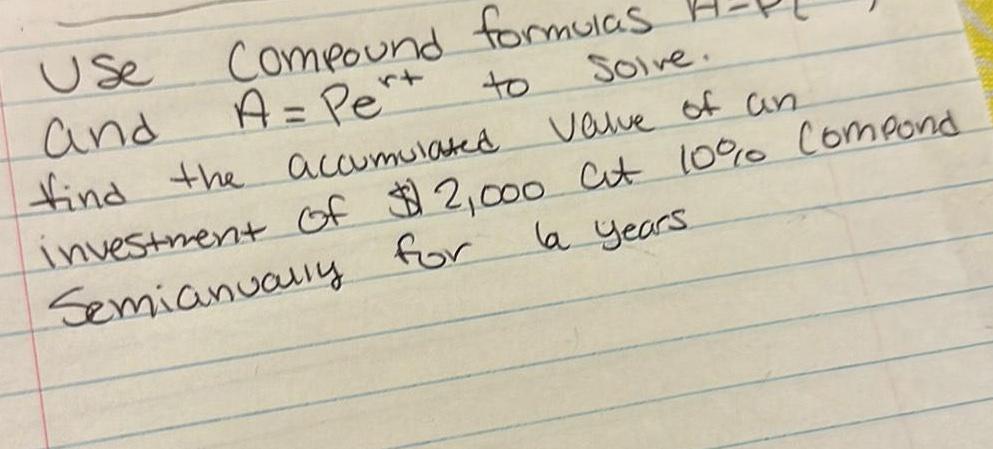 Use Compound formulas A=P(
and A = Pe^rt to solve.
find the accumulated value of an
investment of $2,000 at 10% Compond
Semianually for 6 years